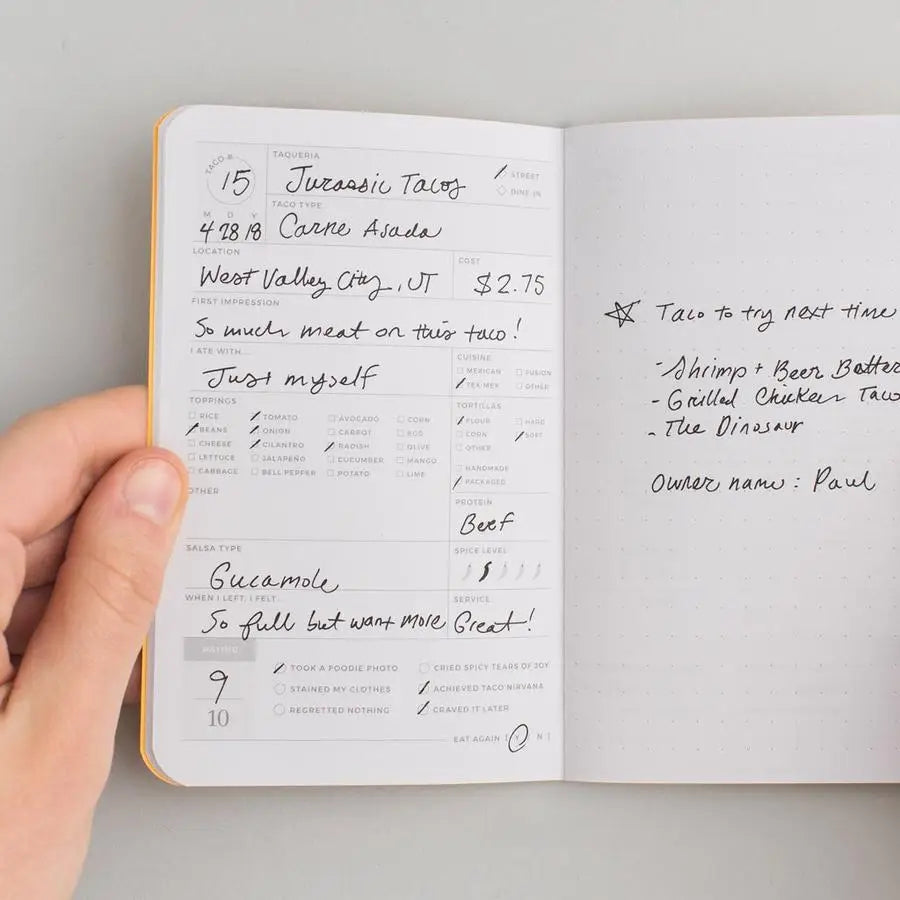 TACO #
15
M D Y
4 28 18
TAQUERIA
Jurassic Tacos
STREET
DINE IN
TACO TYPE
Carne Asada
LOCATION
West Valley City, UT
COST
$2.75
FIRST IMPRESSION
So much meat on this taco!
I ATE WITH...
Just myself
CUISINE
MEXICAN FUSION
TEX-MEX OTHER
TOPPINGS
RICE TOMATO AVOCADO CORN
BEANS ONION CARROT EGG
CHEESE CILANTRO RADISH OLIVE
LETTUCE JALAPEÑO CUCUMBER MANGO
CABBAGE BELL PEPPER POTATO LIME
OTHER
TORTILLAS
FLOUR HARD
CORN SOFT
OTHER
HANDMADE
PACKAGED
PROTEIN
Beef
SALSA TYPE
Gucamole
SPICE LEVEL
WHEN I LEFT, I FELT...
So full but want more
SERVICE
Great!
RATING
9
10
TOOK A FOODIE PHOTO CRIED SPICY TEARS OF JOY
STAINED MY CLOTHES ACHIEVED TACO NIRVANA
REGRETTED NOTHING CRAVED IT LATER
EAT AGAIN [ Y N ]
Taco to try next time
- Shrimp + Beer Batter
- Grilled Chicken Taco
- The Dinosaur
Owner name: Paul